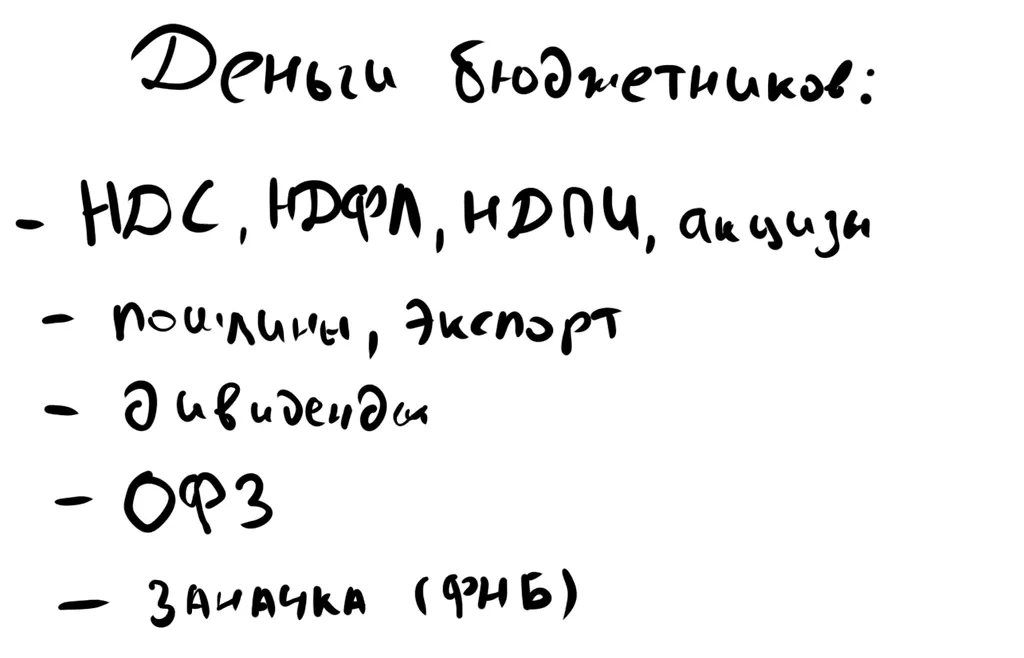 Деньги бюджетников:
- НДС, НДФЛ, НДПИ, акцизы
- пошлины, экспорт
- дивиденды
- ОФЗ
- заначка (ФНБ)